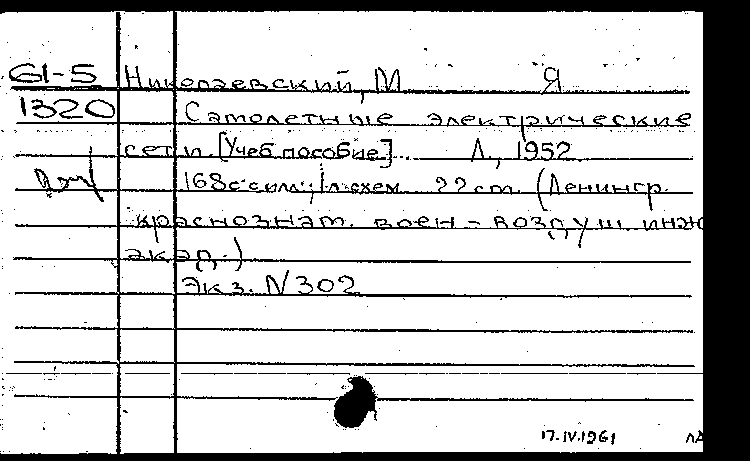 61-5 Николаевский, М Я
1320 Самолетные электрические
сети. [Учеб. пособие]. Л., 1952
168 с. с илл.; 1 л. схем. 22 cm. (Ленингр.
краснознам. воен-воздуш. инж
акад.)
Экз. N 302
17.IV.1961 ЛД